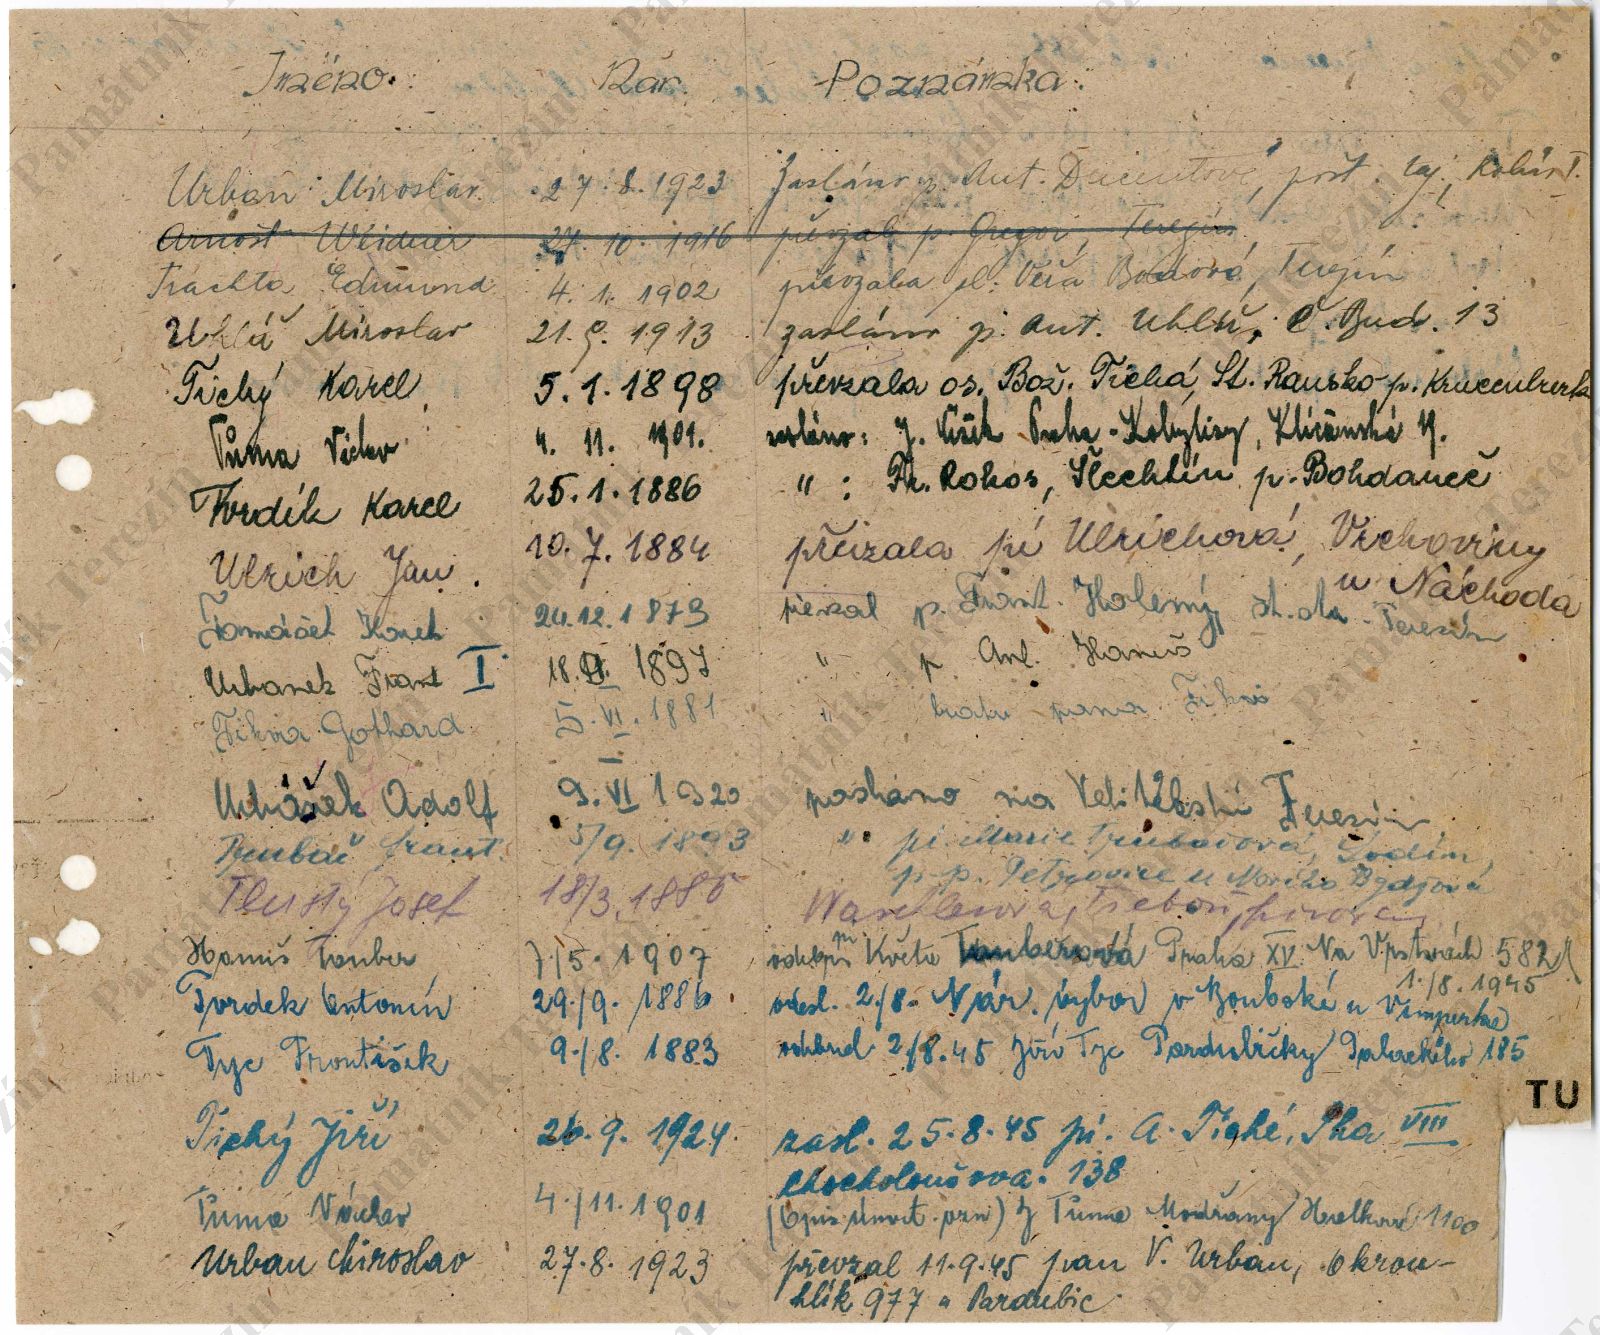 Jméno. Nar. Poznámka.
Urban Miroslav. 27.8.1923 Zasláno p. Ant. post. Kolín I.
Arnošt Weidner 27. 10. 1916 převzal p. Gregor, Terezín
Trachta Edmund 4. 1. 1902 převzala sl. Věra Bodová, Terezín
Uhlíř Miroslav 21.9.1913 zasláno p. Ant. Uhlíř, Č. Bud. 13
Tichý Karel 5.1.1898 převzala os. Bož. Tichá, St. Ransko p. Krucenburk
Tůma Václav 4. 11. 1901. zasláno: J. Vích Praha-Kobylisy, Klíčanská 4.
Tvrdík Karel 25.1.1886 " : Fr. Rokos, Šlechtín p. Bohdaneč
Ulrich Jan. 10.7.1884 převzala pí Ulrichová, Vrchoviny
u Náchoda
Tomášek Karel 24.12.1873 převzal p. Frant. Holený, Terezín
Urbanek Frant I 18. 1897 " p Ant. Hanuš
Tikva Gothard 5.VI.1881 "
Urbášek Adolf 9.VI 1920 posláno na Velitelství Terezín
Trubač Frant. 5/9.1893 " pí. Marie Trubačová,
p.p. Petrovice u
Tlustý Josef 18/3.1886 Třeboň,
Hanuš Tauber 7/5.1907 pí Květa Tauberová Praha XV Na Vrstvách 582
1./8.1945
Tvrdek Antonín 29./9.1886 odesl. 2./8. Nár. výbor v Boubské u Vimperka
Tyc František 9./8. 1883 2./8.45 Jiří Tyc Pardubičky Palackého 185
TU
Tichý Jiří 26.9.1924. zasl. 25.8.45 pí. A. Tiché, Pha VIII
Chocholoušova. 138
Tůma Václav 4./11.1901 (Opis úmrt. ozn) J Tůma Modřany 1100
Urban Miroslav 27.8.1923 převzal 11.9.45 pan V. Urban, Okrou-
hlík 977 u Pardubic.
Památník Terezín